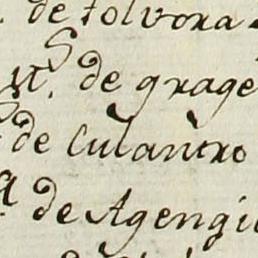 de Polvora
de grage
de Culantro
de Agengi